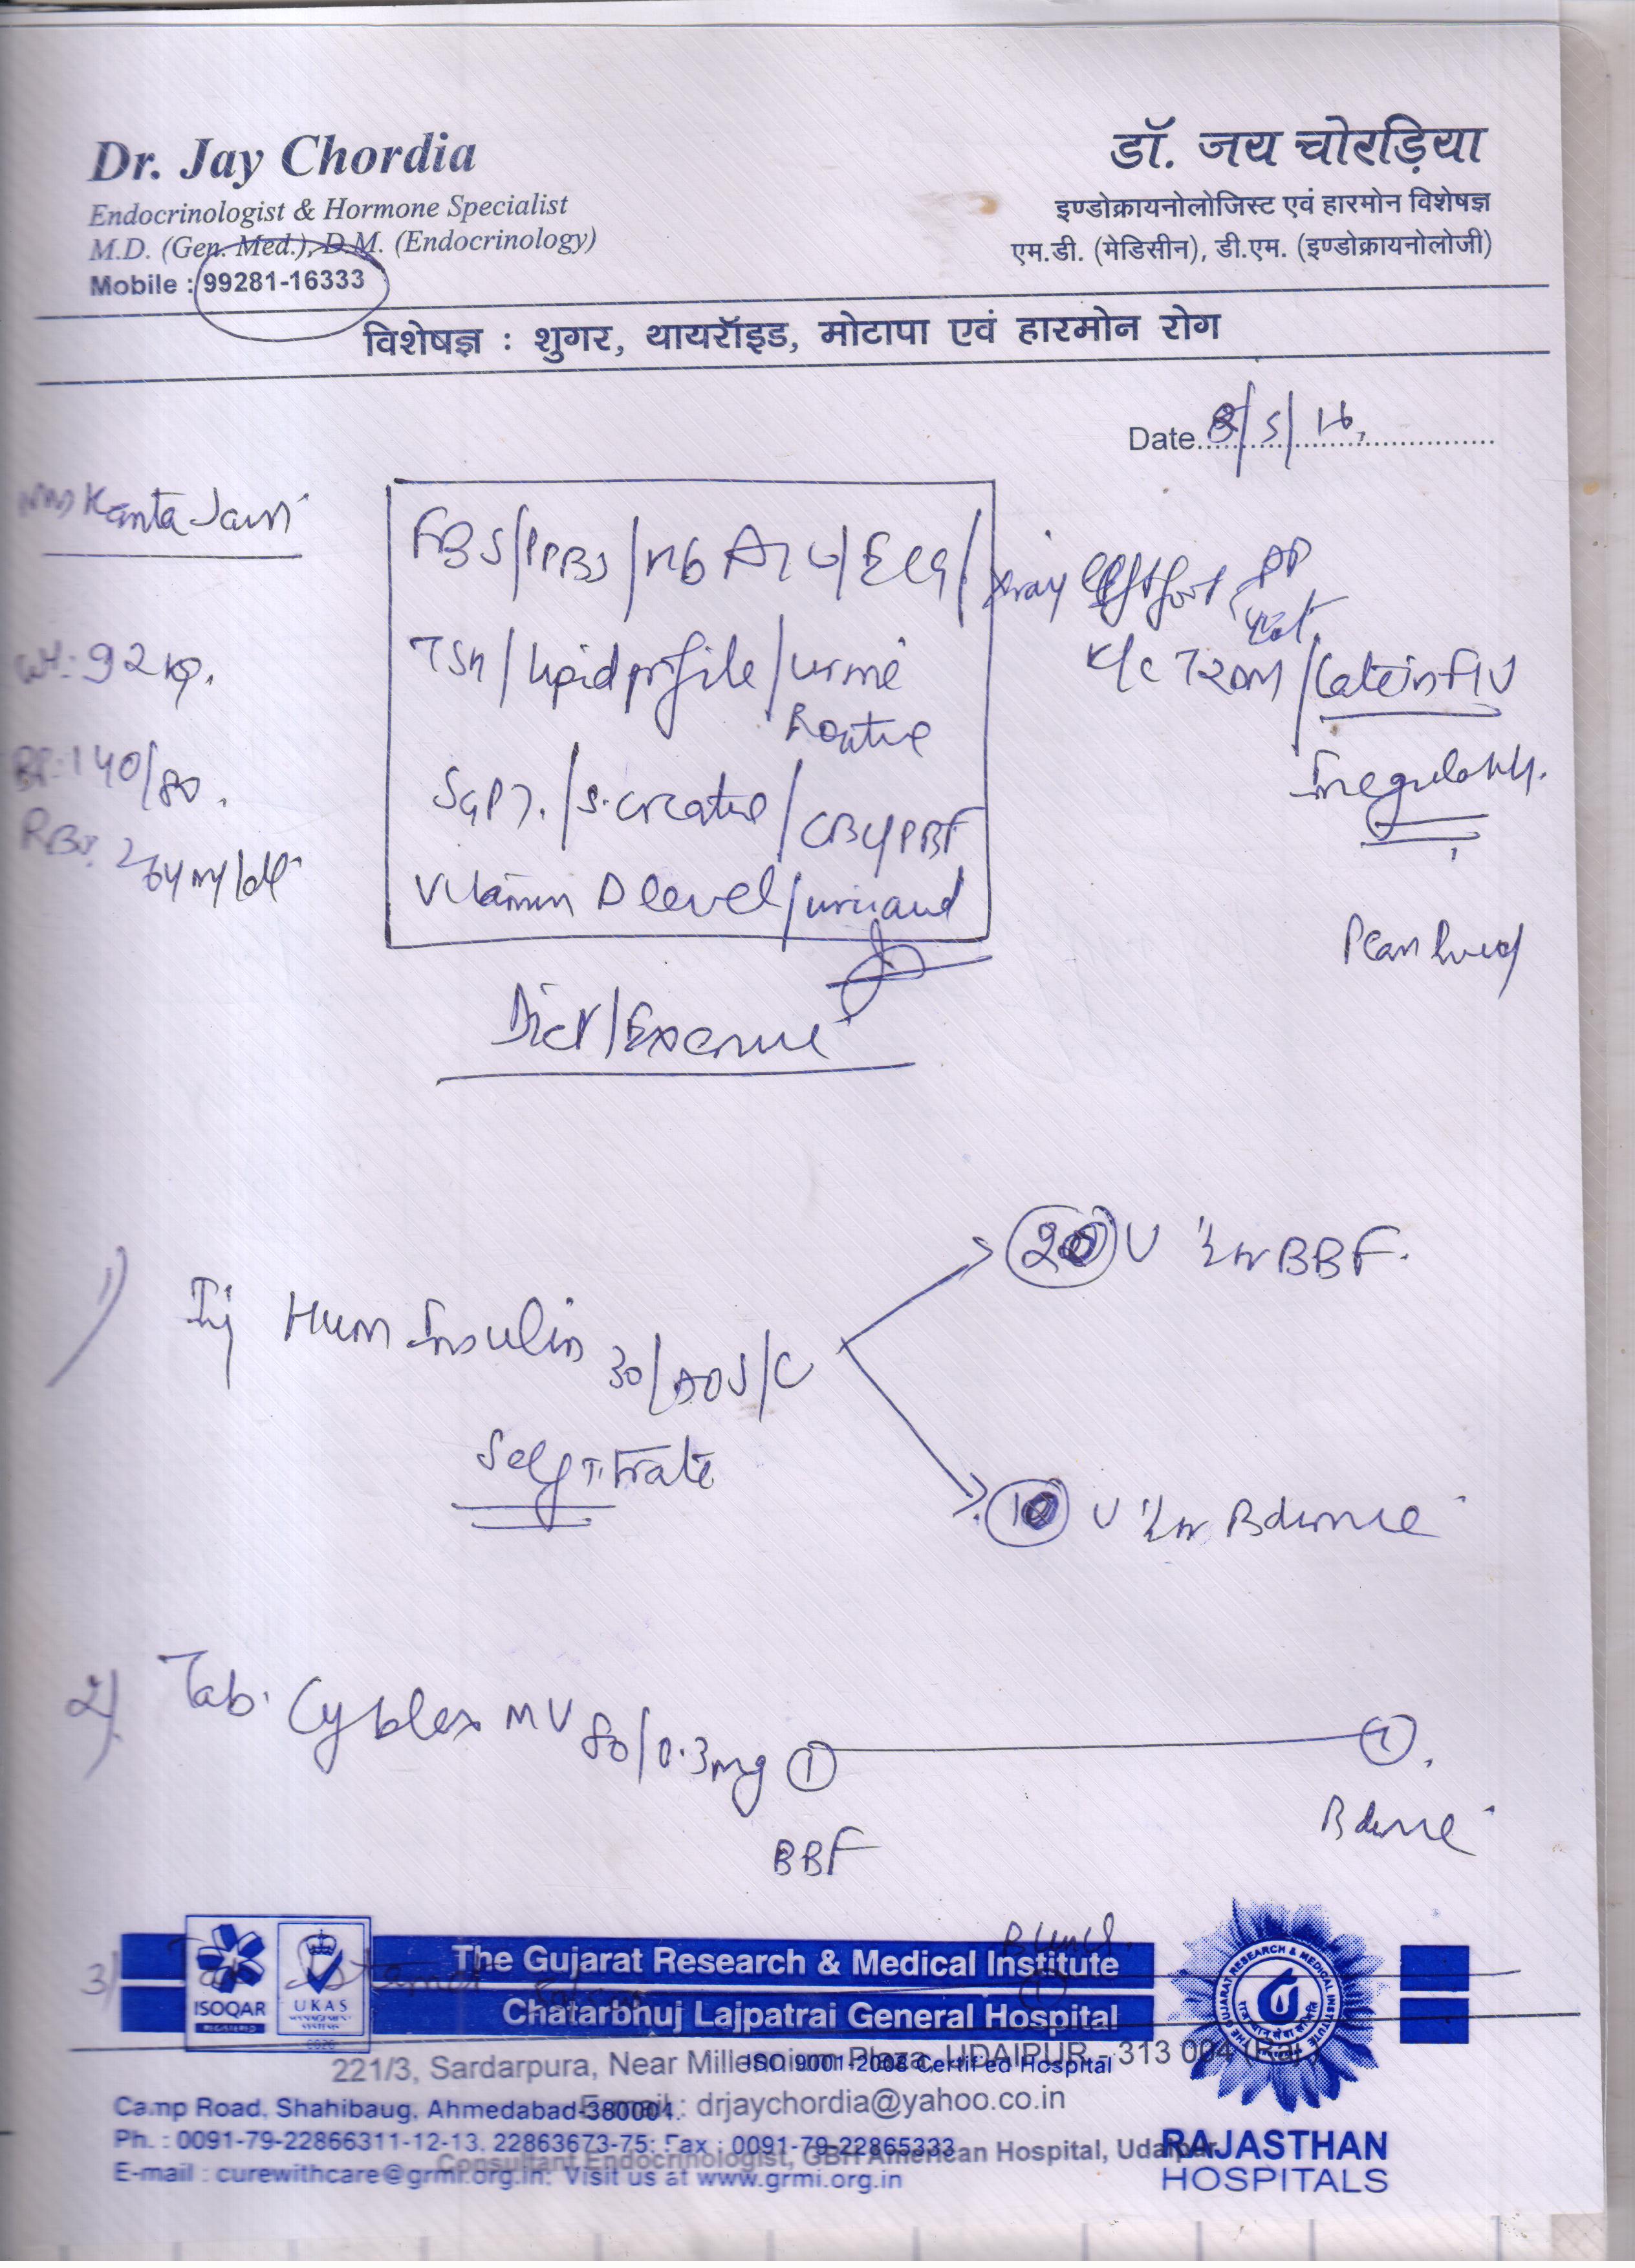 Dr. Jay Chordia
Endocrinologist & Hormone Specialist
M.D. (Gen. Med.), D.M. (Endocrinology)
Mobile : 99281-16333
डॉ. जय चोरड़िया
इण्डोक्रायनोलोजिस्ट एवं हारमोन विशेषज्ञ
एम.डी. (मेडिसीन), डी.एम. (इण्डोक्रायनोलोजी)
विशेषज्ञ : शुगर, थायरॉइड, मोटापा एवं हारमोन रोग
Date 8/5/16
Kanta Jain
Wt: 92 kg.
BP: 140/80.
RBS: 264 mg/dl
FBS/PPBS/Hb A1c/ECG/Xray left foot AP
TSH/Lipid profile/urine
Routine
SGPT./S. creatine/CBC/PBF
Vitamin D level/uric acid
K/C T2DM/Late in F/U
Irregularly.
Diet/Exercise
1) Inj Hum Insulin 30/ S/C
Self titrate
20 U 1/2 hr BBF.
10 U 1/2 hr B dinner
2) Tab. Cyblex MV 80/0.3mg 1 1.
BBF
B dinner
3)
B lunch.
1
ISOQAR
REGISTERED
UKAS
The Gujarat Research & Medical Institute
Chatarbhuj Lajpatrai General Hospital
ISO 9001-2008 Certified Hospital
221/3, Sardarpura, Near Millennium Plaza, UDAIPUR - 313 004 (Raj.)
Camp Road, Shahibaug, Ahmedabad-380004.
E-mail : drjaychordia@yahoo.co.in
Ph. : 0091-79-22866311-12-13, 22863673-75: Fax : 0091-79-22865333
Consultant Endocrinologist, GBH American Hospital, Udaipur
E-mail : curewithcare@grmi.org.in: Visit us at www.grmi.org.in
GUJARAT RESEARCH & MEDICAL INSTITUTE
RAJASTHAN
HOSPITALS